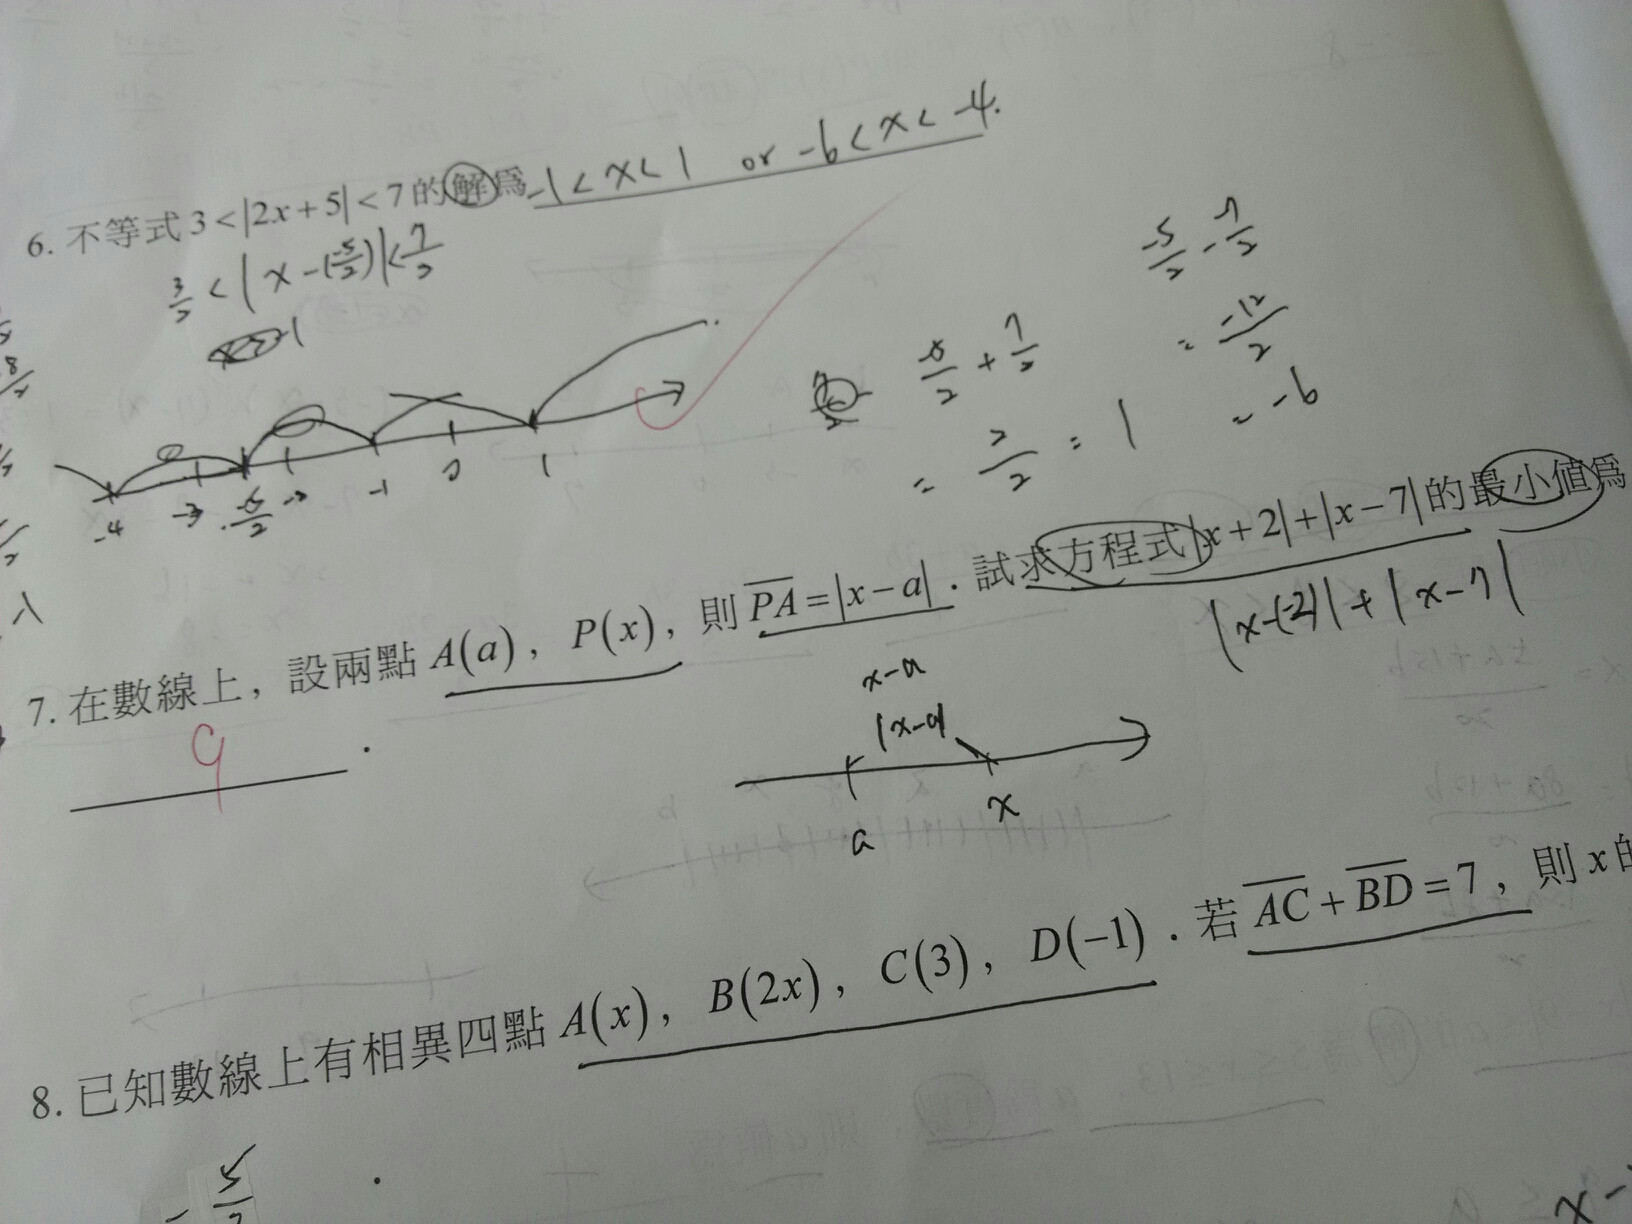 6. 不等式 3 < |2x + 5| < 7 的解爲 -1 < x < 1 or -6 < x < -4.
3/2 < | x - (-5/2) | < 7/2
-5/2 - 7/2
= -12/2
= -6
-5/2 + 7/2
= 2/2 = 1
-4 -3 -5/2 -2 -1 0 1
7. 在數線上，設兩點 A(a)，P(x)，則 PA = |x − a|．試求方程式 |x + 2| + |x − 7| 的最小值爲
|x-(-2)| + |x-7|
9 .
x-a
|x-a|
a x
8. 已知數線上有相異四點 A(x)，B(2x)，C(3)，D(−1)．若 AC + BD = 7，則 x 的
.